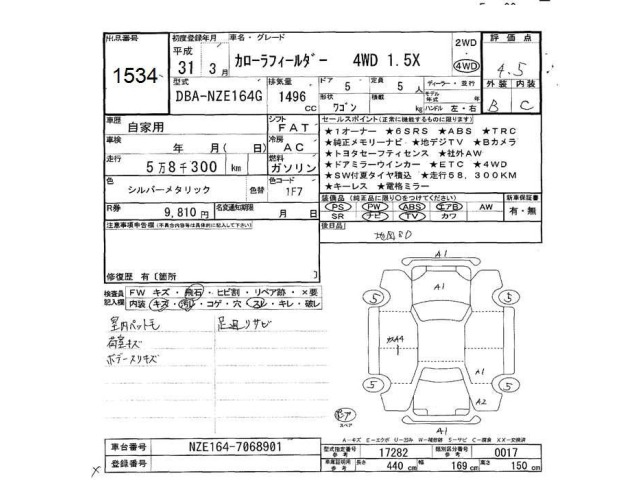 出品番号
1534
初度登録年月 車名・グレード
平成
31 3月
カローラフィールダー 4WD 1.5X
2WD
・
4WD
評価点
4.5
外装 内装
B C
型式
DBA-NZE164G
排気量
1496
cc
ドア
5
定員
5 人
形状
ワゴン
積載
kg
ディーラー・並行
モデル年式 年
ハンドル 左・右
車歴
自家用
シフト
FAT
車検
年 月( 日)
冷房
AC
走行
5万8千300 km
燃料
ガソリン
色
シルバーメタリック
色替
色コード
1F7
R券
9,810 円
名変通知期限
月 日
セールスポイント(正常に機能するものに限ります)
★1オーナー ★6SRS ★ABS ★TRC
★純正メモリーナビ ★地デジTV ★Bカメラ
★トヨタセーフティセンス ★社外AW
★ドアミラーウインカー ★ETC ★4WD
★SW付夏タイヤ積込 ★走行58,300KM
★キーレス ★電格ミラー
装備品(純正品に限り○をつけてください)
PS PW ABS エアB AW
SR ナビ TV カワ
新車保証書
有・無
後日品
地図SD
注意事項申告欄(不具合内容等は具体的に記入して下さい)
修復歴 有〔箇所 〕
検査員記入欄
FW キズ・飛石・ヒビ割・リペア跡・×要
内装 キズ・汚レ・コゲ・穴・スレ・キレ・破レ
室内ペット毛 足廻リサビ
荷室キズ
ボデースリキズ
A1
A1
5 5
A4
A1
5 5
A2
A1
スペア
A-キズ E-エクボ U-凹み W-補修跡 S-サビ C-腐食 X X-交換済
車台番号
NZE164-7068901
登録番号
型式指定番号
参考
17282
類別区分番号
参考
0017
車庫証明用
参考
長さ
440 cm
幅
169 cm
高さ
150 cm